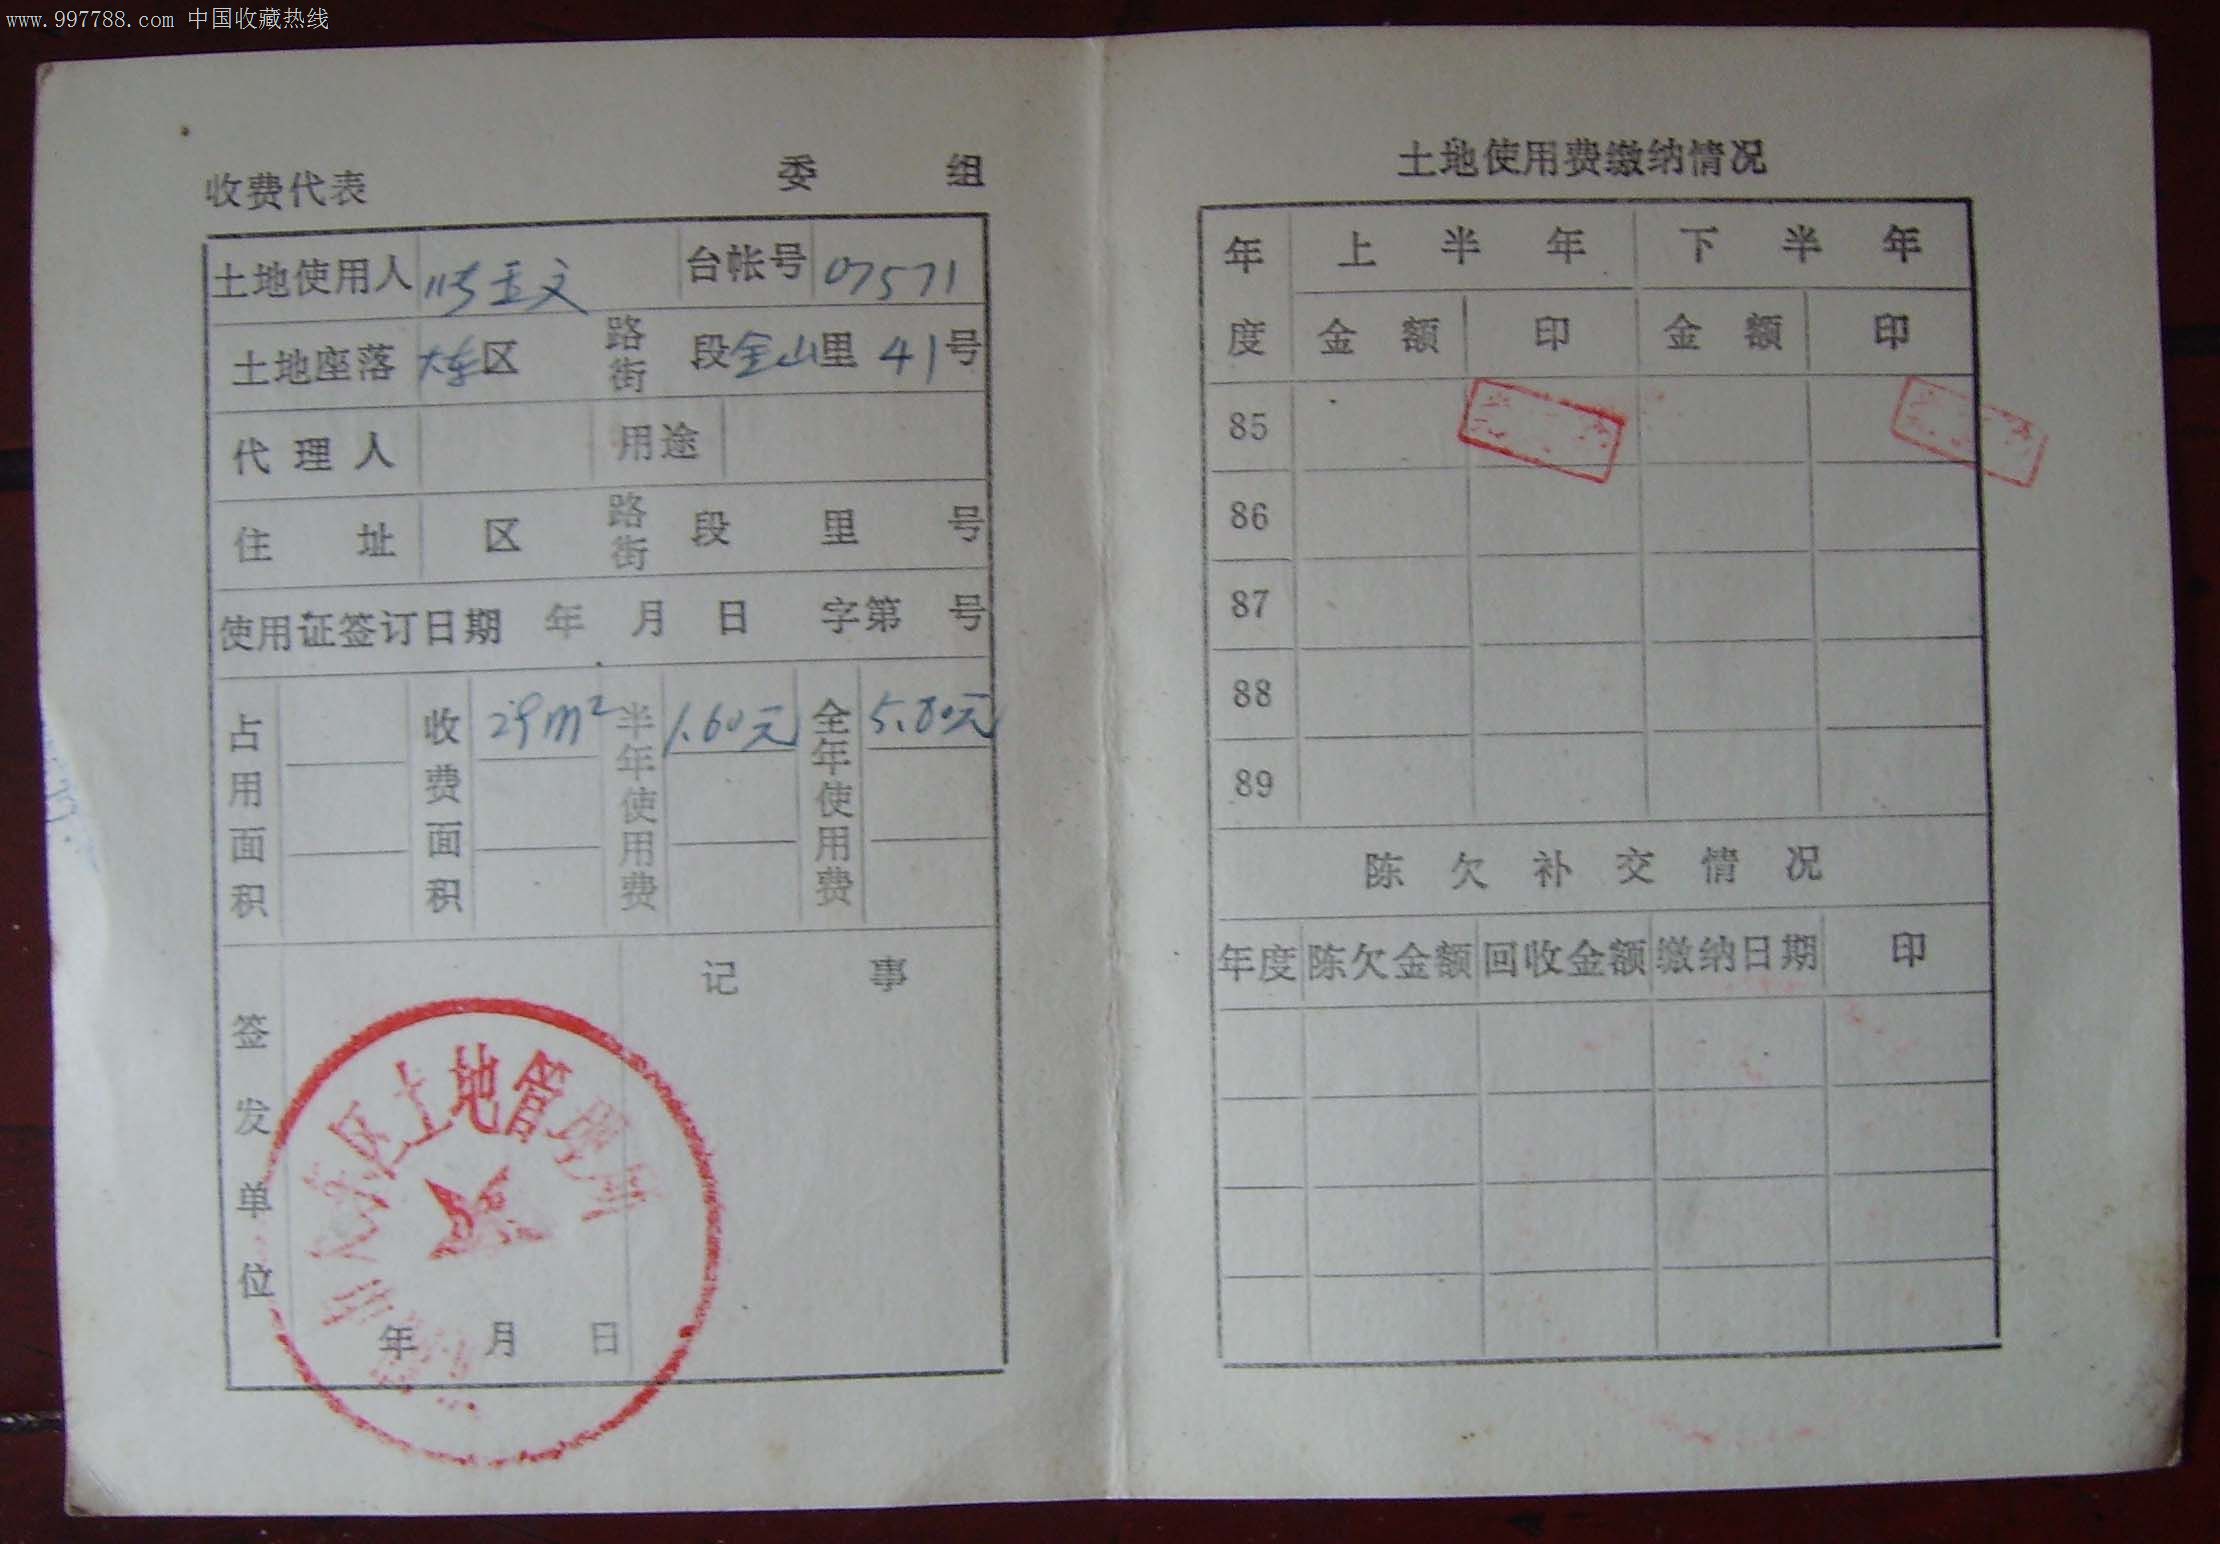 www.997788.com 中国收藏热线
收费代表 委 组
土地使用人 玉文 台帐号 07571
土地座落 大东区 路街 段金山里 41号
代理人 用途
住址 区 路街 段 里 号
使用证签订日期 年 月 日 字第 号
占用面积 收费面积 29m² 半年使用费 1.60元 全年使用费 5.80元
签发单位 记事
区土地管理
年 月 日
土地使用费缴纳情况
年度 上半年 下半年
金额 印 金额 印
85
86
87
88
89
陈欠补交情况
年度 陈欠金额 回收金额 缴纳日期 印